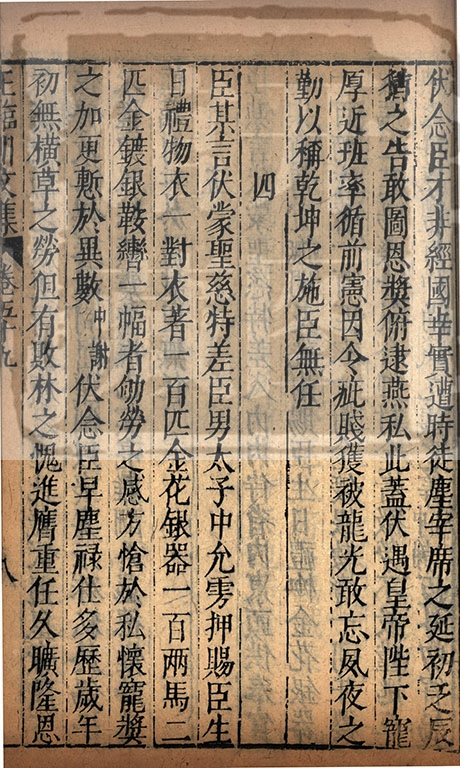 伏念臣才非經國幸實遭時徒塵宰席之延初乏辰
猷之告敢圖恩奬俯逮燕私此蓋伏遇皇帝陛下寵
厚近班率循前憲因令疵賤獲被龍光敢忘夙夜之
勤以稱乾坤之施臣無任
四
臣某言伏蒙聖慈特差臣男太子中允雱押賜臣生
日禮物衣一對衣著一百匹金花銀器一百兩馬二
匹金鍍銀鞍轡一幅者劬勞之感方愴於私懷寵奬
之加更慙於異數中謝伏念臣早塵禄仕多歷歲年
初無橫草之勞但有敗林之愧進膺重任久曠隆恩
王臨川文集 卷五十九 八